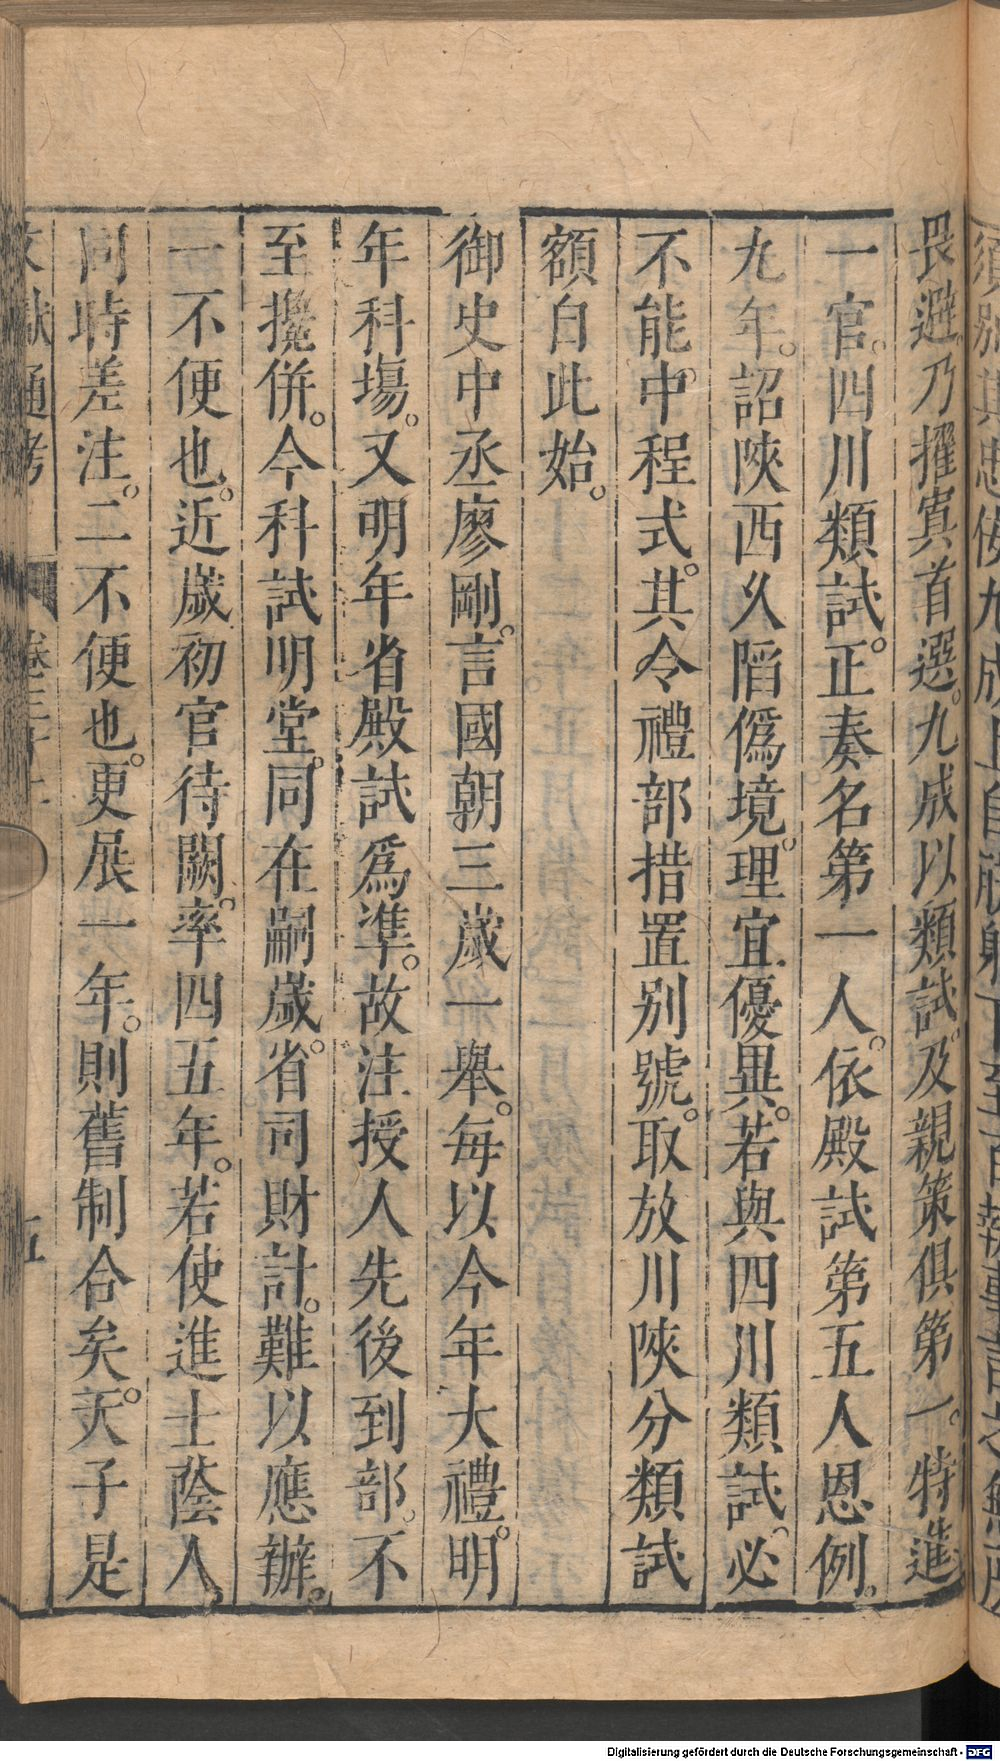 畏避。乃擢寘首選。九成以類試及親策俱第一。特進
一官。四川類試。正奏名第一人。依殿試第五人恩例。
九年。詔陝西久陷僞境。理宜優異。若與四川類試。必
不能中程式。其令禮部措置别號。取放川陝分類試
額自此始。
御史中丞廖剛。言國朝三歲一舉。每以今年大禮。明
年科塲。又明年省殿試爲準。故注授人先後到部。不
至攙併。今科試明堂。同在嗣歲。省司財計。難以應辦。
一不便也。近歲初官待闕。率四五年。若使進士蔭人。
同時差注。二不便也。更展一年。則舊制合矣。天子是
文獻通考
卷三十二
五
Digitalisierung gefördert durch die Deutsche Forschungsgemeinschaft - DFG